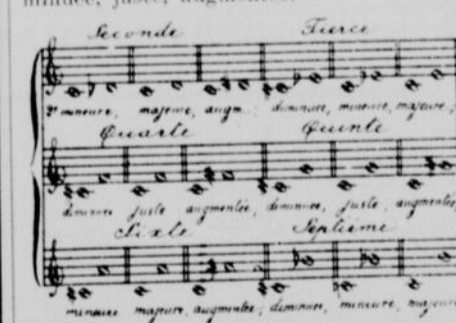 minuée, juste, augmentée.
Seconde Tierce
2de mineure, majeure, augm.: diminuée, mineure, majeure,
Quarte Quinte
diminuée juste augmentée, diminuée, juste, augmentée,
Sixte Septième
mineure majeure, augmentée; diminuée, mineure, majeure